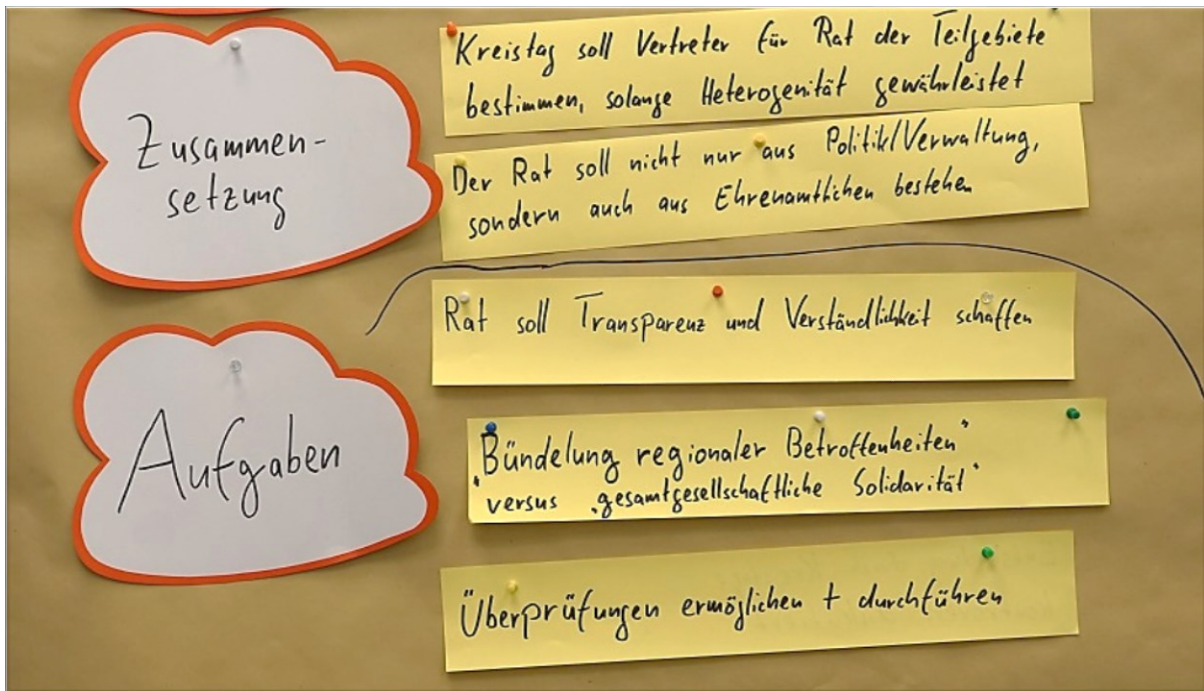 Zusammen-
setzung
Kreistag soll Vertreter für Rat der Teilgebiete
bestimmen, solange Heterogenität gewährleistet
Der Rat soll nicht nur aus Politik/Verwaltung,
sondern auch aus Ehrenamtlichen bestehen
Aufgaben
Rat soll Transparenz und Verständlichkeit schaffen
"Bündelung regionaler Betroffenheiten"
versus "gesamtgesellschaftliche Solidarität"
Überprüfungen ermöglichen + durchführen